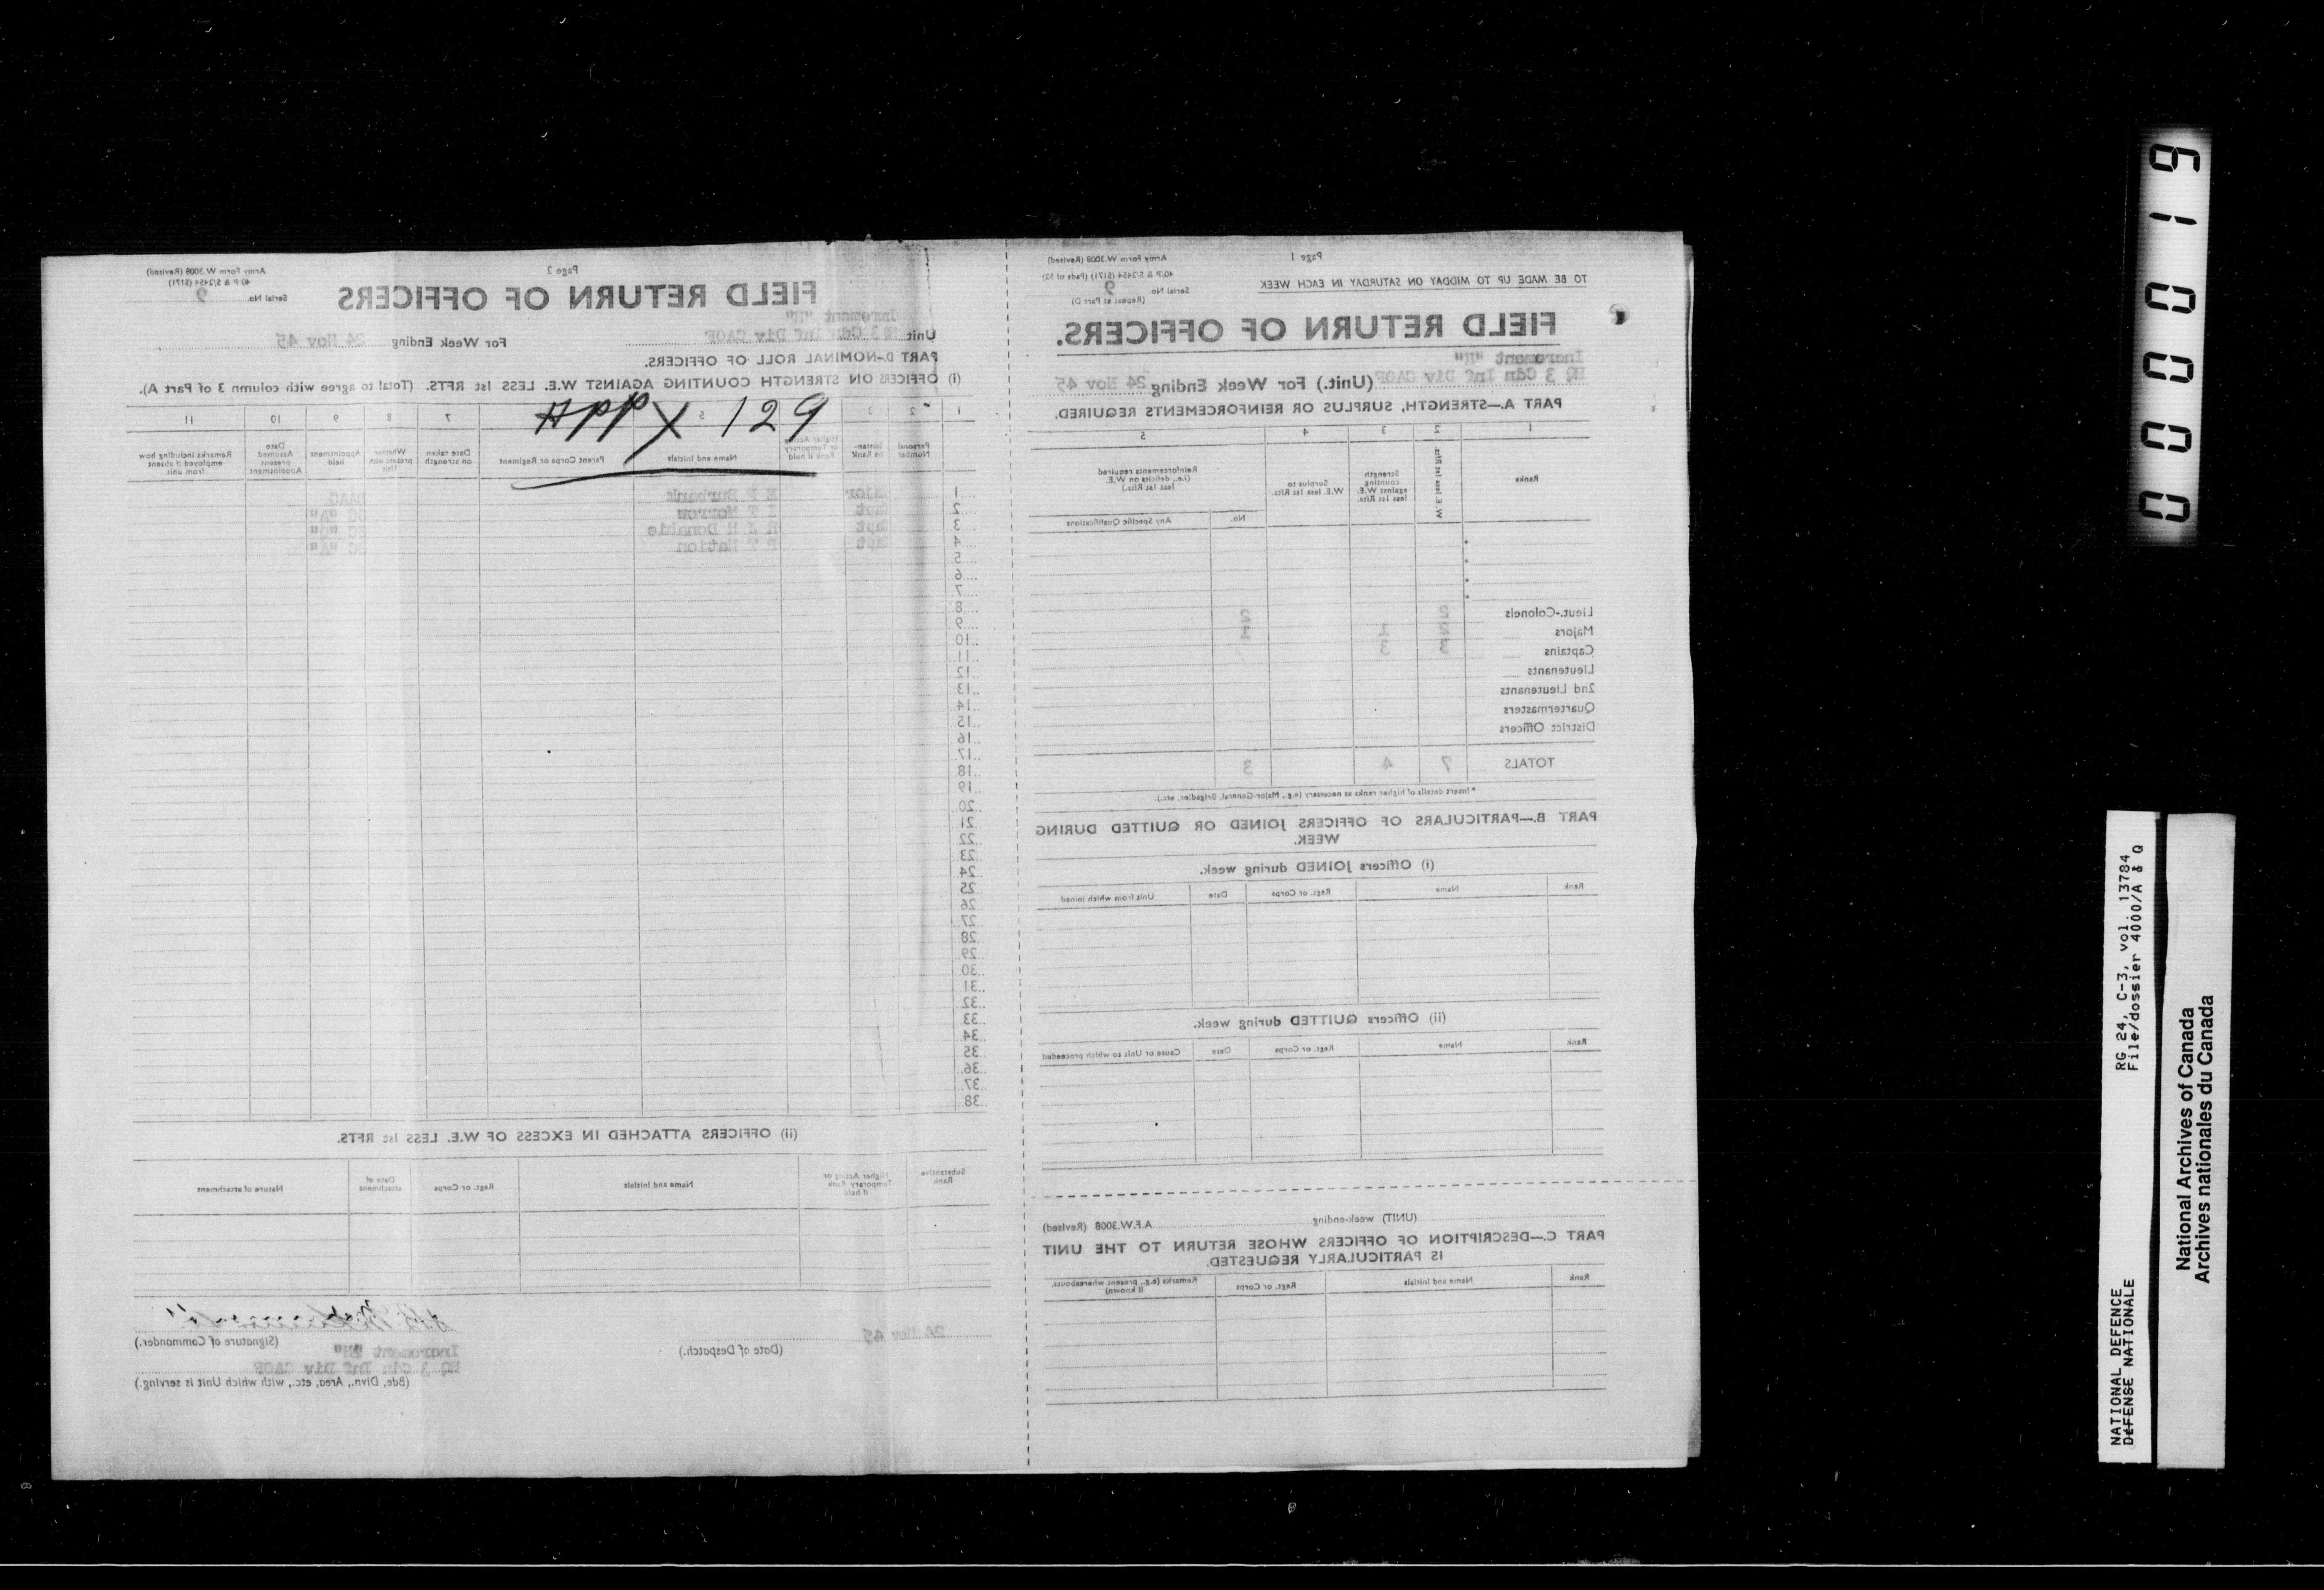 Page 1
Army Form W.3008 (Revised)
40/P & S/2454 (5171) (Pads of 32)
TO BE MADE UP TO MIDDAY ON SATURDAY IN EACH WEEK
Serial No. 9
(Repeat at Part D)
FIELD RETURN OF OFFICERS.
Increment "H"
HQ 3 Cdn Inf Div CAOF (Unit.) For Week Ending 24 Nov 45
PART A.—STRENGTH, SURPLUS OR REINFORCEMENTS REQUIRED.
1 2 3 4 5
Ranks
W. E. less 1st Rfts.
Strength counting against W.E. less 1st Rfts.
Surplus to W.E. less 1st Rfts.
Reinforcements required (i.e., deficits on W.E. less 1st Rfts.)
No. Any Specific Qualifications
Lieut.-Colonels 2 2
Majors 2 1 1
Captains 3 3
Lieutenants
2nd Lieutenants
Quartermasters
District Officers
TOTALS 7 4 3
* Insert details of higher ranks as necessary (e.g., Major-General, Brigadier, etc.).
PART B.—PARTICULARS OF OFFICERS JOINED OR QUITTED DURING
WEEK.
(i) Officers JOINED during week.
Rank Name Regt. or Corps Date Unit from which joined
(ii) Officers QUITTED during week.
Rank Name Regt. or Corps Date Cause or Unit to which proceeded
(UNIT) week-ending A.F.W.3008 (Revised)
PART C.—DESCRIPTION OF OFFICERS WHOSE RETURN TO THE UNIT
IS PARTICULARLY REQUESTED.
Rank Name and Initials Regt. or Corps Remarks (e.g., present whereabouts, if known)
Page 2
Army Form W.3008 (Revised)
40 P & S/2454 (5171)
FIELD RETURN OF OFFICERS
Serial No. 9
Increment "H"
Unit HQ 3 Cdn Inf Div CAOF For Week Ending 24 Nov 45
PART D.—NOMINAL ROLL OF OFFICERS.
(i) OFFICERS ON STRENGTH COUNTING AGAINST W.E. LESS 1st RFTS. (Total to agree with column 3 of Part A).
APPX 129
1 2 3 5 7 8 9 10 11
Personal Number
Higher Acting or Temporary Rank if held
Name and Initials
Parent Corps or Regiment
Date taken on strength
Whether present with this
Appointment held
Date Assumed present Appointment
Remarks including how employed if absent from unit
1 Major E F Burbank DAAG
2 Capt I T Morrow SC "A"
3 Capt E J H Donahie SC "Q"
4 Capt P T Nation SC "A"
5
6
7
8
9
10
11
12
13
14
15
16
17
18
19
20
21
22
23
24
25
26
27
28
29
30
31
32
33
34
35
36
37
38
(ii) OFFICERS ATTACHED IN EXCESS OF W.E. LESS 1st RFTS.
Substantive Rank
Higher Acting or Temporary Rank if held
Name and Initials
Regt. or Corps
Date of attachment
Nature of attachment
24 Nov 45
(Date of Despatch.)
(Signature of Commander.)
Increment "H"
HQ 3 Cdn Inf Div CAOF
(Bde, Divn., Area, etc., with which Unit is serving.)
000019
NATIONAL DEFENCE RG 24, C-3, vol. 13784
DEFENSE NATIONALE File/dossier 4000/A & Q
National Archives of Canada
Archives nationales du Canada